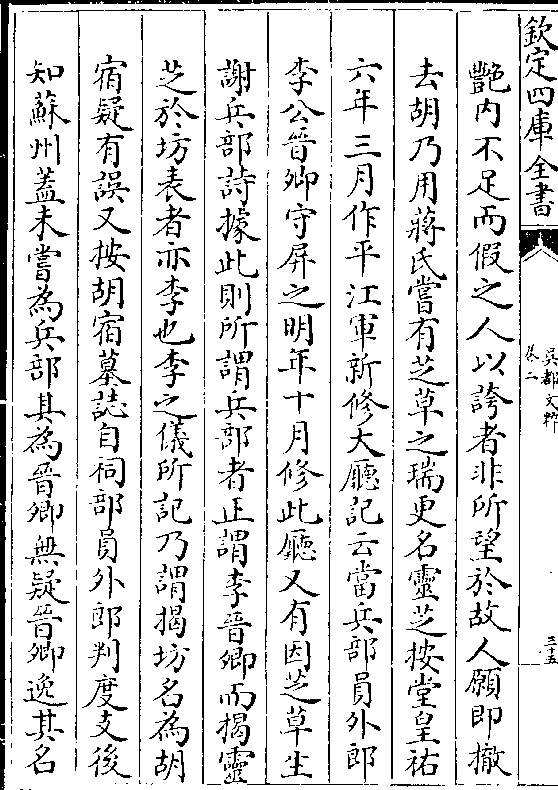 欽定四庫全書
吳都文粹
卷二
三十五
艷内不足而假之人以誇者非所望於故人願即撤
去胡乃用蔣氏嘗有芝草之瑞更名靈芝按堂皇祐
六年三月作平江軍新修大廳記云當兵部員外郎
李公晉卿守屏之明年十月修此廳又有因芝草生
謝兵部詩據此則所謂兵部者正謂李晉卿而揭靈
芝於坊表者亦李也李之儀所記乃謂揭坊名為胡
宿疑有誤又按胡宿墓誌自祠部員外郎判度支後
知蘇州蓋未嘗為兵部其為晉卿無疑晉卿逸其名